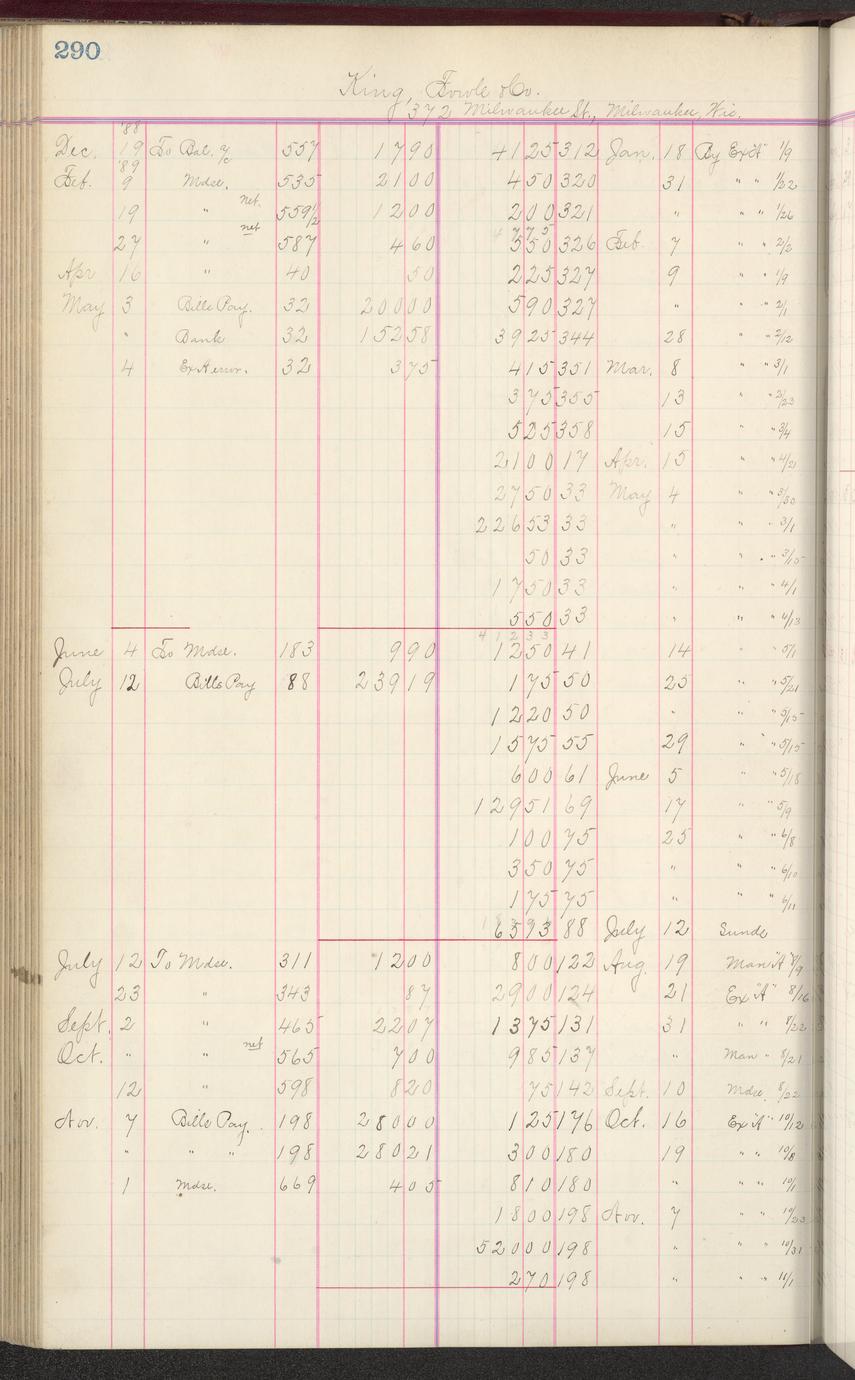 290
King, Fowle & Co.
372 Milwaukee St., Milwaukee, Wis.
'88
Dec. 19 To Bal. % 557 17 90 41 25 312 Jan. 18 By Ex "A" 1/9
'89
Feb. 9 Mdse. 535 21 00 4 50 320 31 " " 1/22
19 " net. 559½ 12 00 2 00 321 " " " 1/26
4 7 7 5
27 " net 587 4 60 5 50 326 Feb. 7 " " 2/2
Apr 16 " 40 50 2 25 327 9 " " 1/9
May 3 Bills Pay. 32 200 00 5 90 327 " " " 2/1
" Bank 32 152 58 39 25 344 28 " " 2/12
4 Ex A error. 32 3 75 4 15 351 Mar. 8 " " 3/1
3 75 355 13 " " 2/23
5 25 358 15 " " 3/4
21 00 17 Apr. 15 " " 4/2
27 50 33 May 4 " " 3/30
226 53 33 " " " 3/1
50 33 " " " 3/15
17 50 33 " " " 4/1
5 50 33 " " " 4/13
4 1 2 3 3
June 4 To Mdse. 183 9 90 12 50 41 14 " " 5/1
July 12 Bills Pay 88 239 19 1 75 50 25 " " 5/21
12 20 50 " " " 5/15
15 75 55 29 " " 5/15
6 00 61 June 5 " " 5/18
129 51 69 17 " " 5/9
1 00 75 25 " " 6/8
3 50 75 " " " 6/10
1 75 75 " " " 6/11
65 93 88 July 12 Sunds
July 12 To Mdse. 311 12 00 8 00 122 Aug. 19 Man "A" 8/9
23 " 343 87 29 00 124 21 Ex "A" 8/16
Sept. 2 " 465 22 07 13 75 131 31 " " 8/22
Oct. " " net 565 7 00 9 85 137 " Man " 8/21
12 " 598 8 20 75 142 Sept. 10 Mdse. 8/22
Nov. 7 Bills Pay. 198 280 00 1 25 176 Oct. 16 Ex "A" 10/12
" " " 198 280 21 3 00 180 19 " " 10/8
1 Mdse. 669 4 05 8 10 180 " " " 10/1
18 00 198 Nov. 7 " " 10/23
520 00 198 " " " 10/31
2 70 198 " " " 11/1